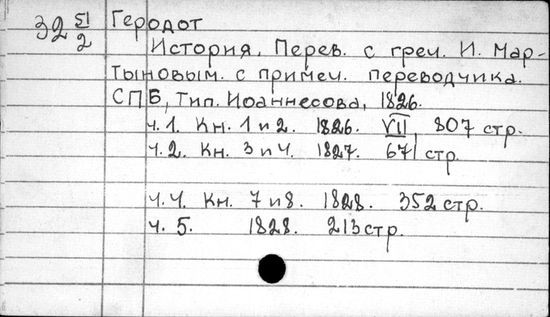 32 51/2 Геродот
История, Перев. с греч. И. Мар-
тыновым. с примеч. переводчика.
СПБ, Тип. Иоаннесова, 1826.
ч. 1. Кн. 1 и 2. 1826. VII, 807 стр.
ч. 2. Кн. 3 и 4. 1827. 671 стр.
ч. 4. Кн. 7 и 8. 1828. 352 стр.
ч. 5. 1828. 213 стр.